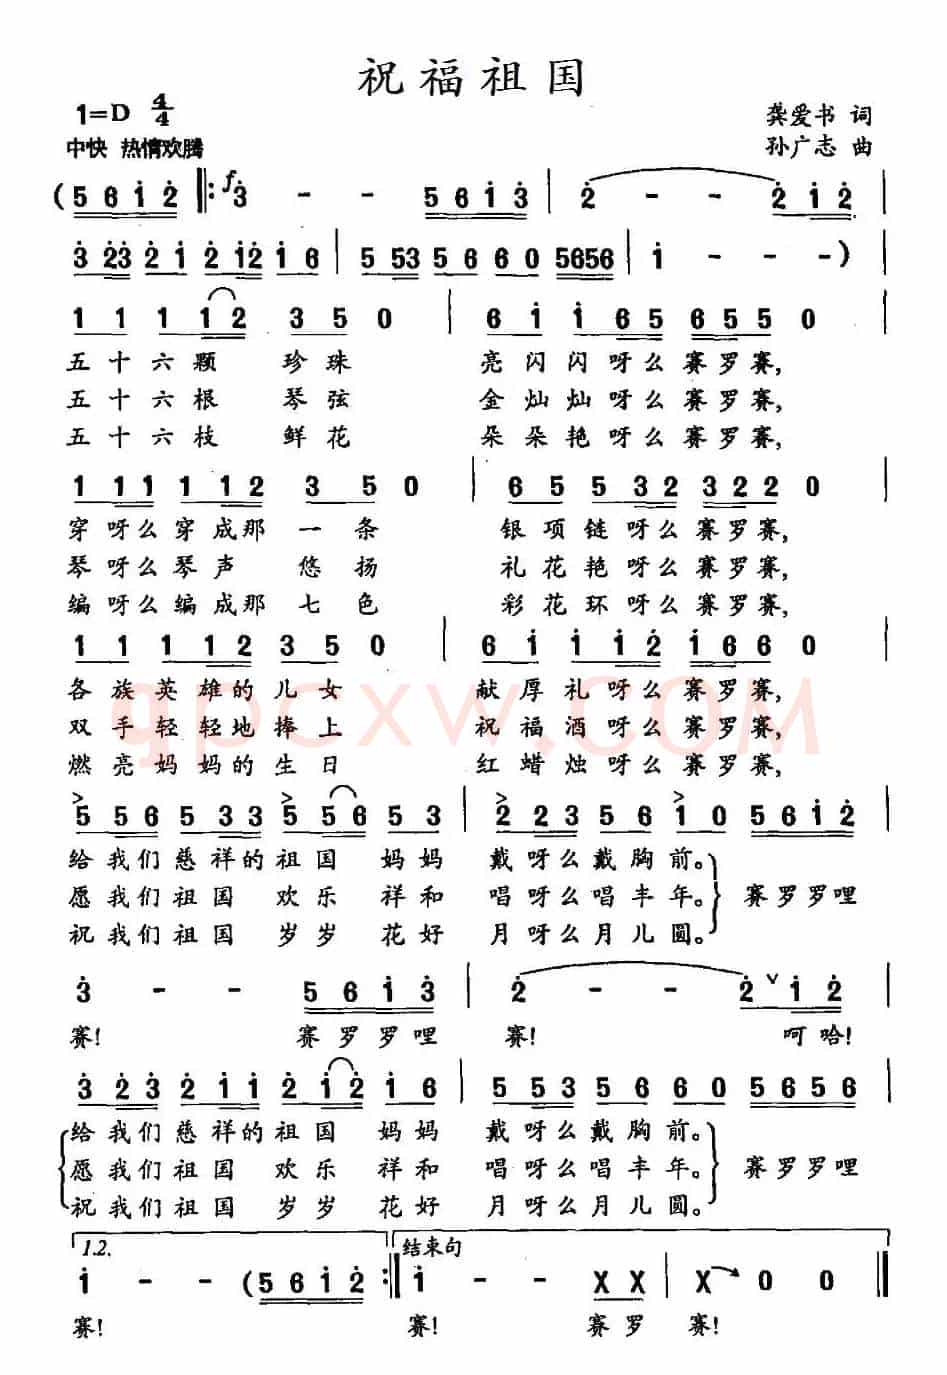 祝福祖国
1=D 4/4
龚爱书 词
中快 热情欢腾
孙广志 曲
( 5 6 1̇ 2̇ ‖: f 3̇ - - 5 6 1̇ 3̇ | 2̇ - - 2̇ 1̇ 2̇ |
3̇ 2̇3̇ 2̇ 1̇ 2̇ 1̇2̇ 1̇ 6 | 5 53 5 6 6 0 5656 | 1̇ - - - ) |
1 1 1 1 2 3 5 0 | 6 1̇ 1̇ 6 5 6 5 5 0 |
五 十 六 颗 珍 珠 亮 闪 闪 呀 么 赛 罗 赛,
五 十 六 根 琴 弦 金 灿 灿 呀 么 赛 罗 赛,
五 十 六 枝 鲜 花 朵 朵 艳 呀 么 赛 罗 赛,
1 1 1 1 1 2 3 5 0 | 6 5 5 3 2 3 2 2 0 |
穿 呀 么 穿 成 那 一 条 银 项 链 呀 么 赛 罗 赛,
琴 呀 么 琴 声 悠 扬 礼 花 艳 呀 么 赛 罗 赛,
编 呀 么 编 成 那 七 色 彩 花 环 呀 么 赛 罗 赛,
1 1 1 1 2 3 5 0 | 6 1̇ 1̇ 1̇ 2̇ 1̇ 6 6 0 |
各 族 英 雄 的 儿 女 献 厚 礼 呀 么 赛 罗 赛,
双 手 轻 轻 地 捧 上 祝 福 酒 呀 么 赛 罗 赛,
gpcxw.COM
燃 亮 妈 妈 的 生 日 红 蜡 烛 呀 么 赛 罗 赛,
> > > >
5 5 6 5 3 3 5 5 6 5 3 | 2 2 3 5 6 1̇ 0 5 6 1̇ 2̇ |
给 我 们 慈 祥 的 祖 国 妈 妈 戴 呀 么 戴 胸 前。
愿 我 们 祖 国 欢 乐 祥 和 唱 呀 么 唱 丰 年。 赛 罗 罗 哩
祝 我 们 祖 国 岁 岁 花 好 月 呀 么 月 儿 圆。
3̇ - - 5 6 1̇ 3̇ | 2̇ - - 2̇ ∨ 1̇ 2̇ |
赛! 赛 罗 罗 哩 赛! 呵 哈!
3̇ 2̇ 3̇ 2̇ 1̇ 1̇ 2̇ 1̇ 2̇ 1̇ 6 | 5 5 3 5 6 6 0 5 6 5 6 |
给 我 们 慈 祥 的 祖 国 妈 妈 戴 呀 么 戴 胸 前。
愿 我 们 祖 国 欢 乐 祥 和 唱 呀 么 唱 丰 年。 赛 罗 罗 哩
祝 我 们 祖 国 岁 岁 花 好 月 呀 么 月 儿 圆。
1.2. 结束句
1̇ - - ( 5 6 1̇ 2̇ :‖ 1̇ - - X X | X 0 0 ‖
赛! 赛! 赛 罗 赛!